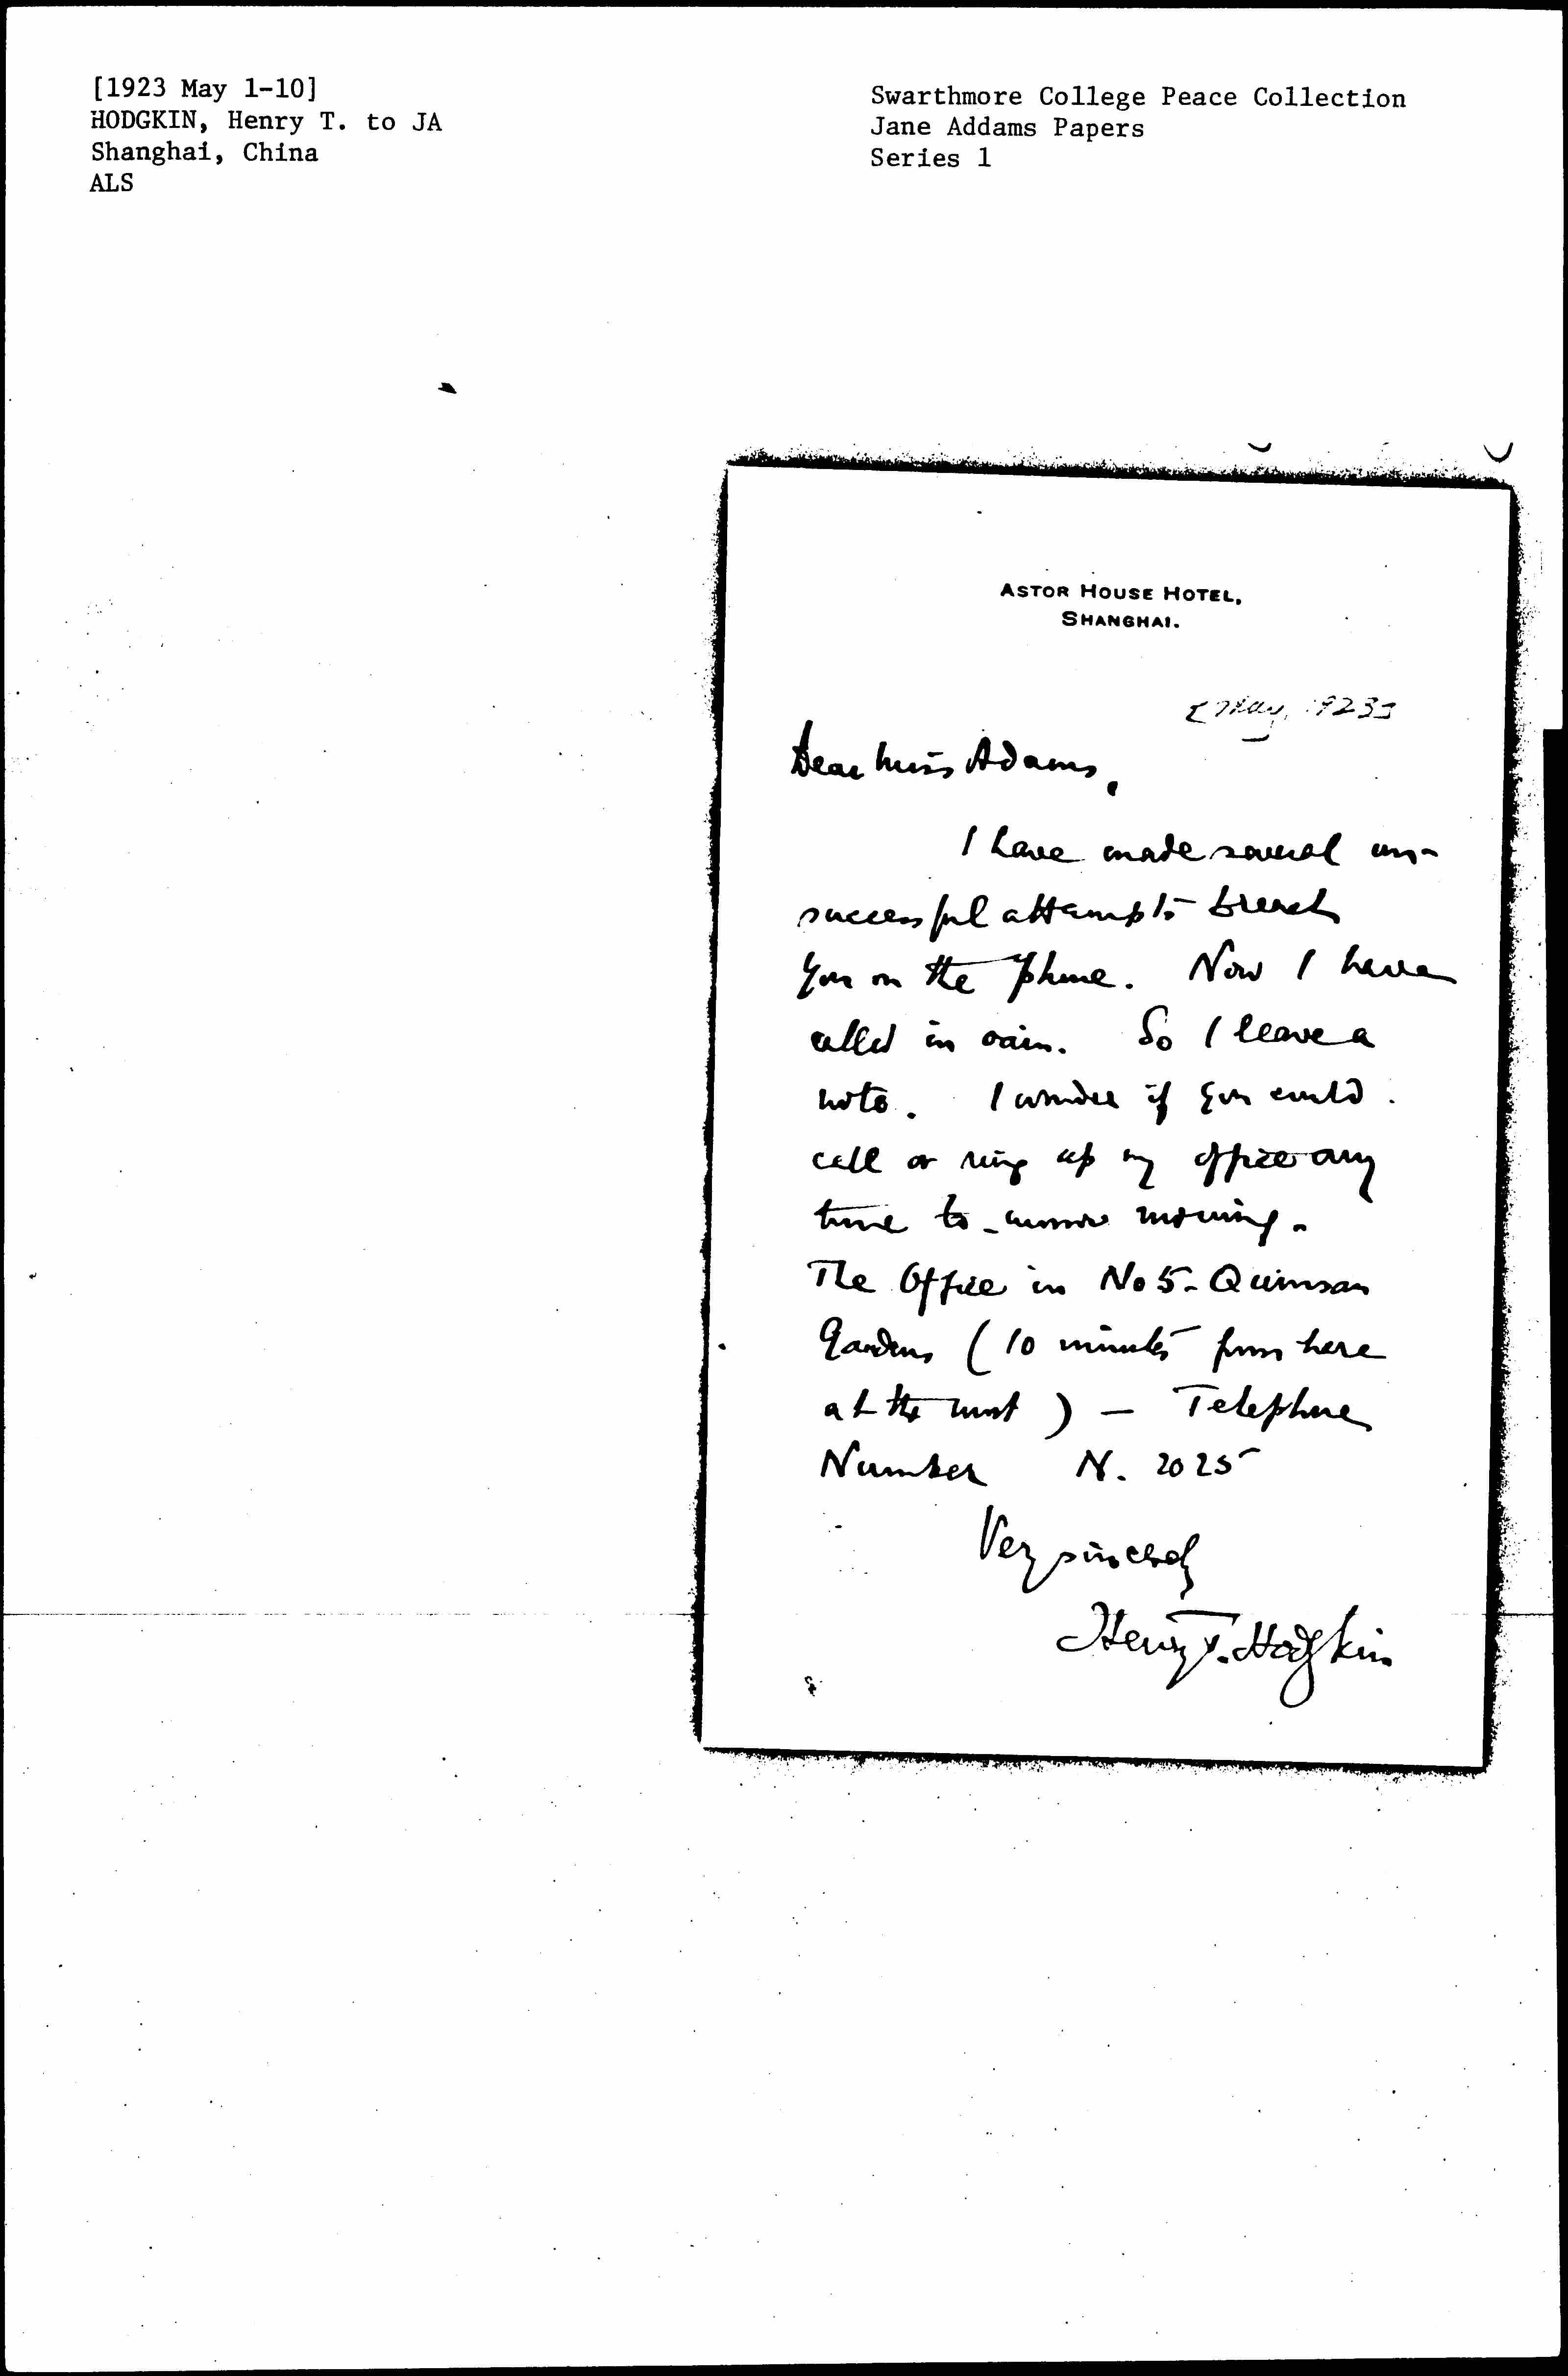 [1923 May 1-10]
HODGKIN, Henry T. to JA
Shanghai, China
ALS
Swarthmore College Peace Collection
Jane Addams Papers
Series 1
ASTOR HOUSE HOTEL,
SHANGHAI.
[May, 1923]
Dear Miss Adams,
I have made several un-
successful attempts to reach
you on the phone. Now I have
called in vain. So I leave a
note. I wonder if you could
call or ring up my office any
time to-morrow morning.
The Office in No 5. Quinsan
Gardens (10 minutes from here
at the most) — Telephone
Number N. 2025
Very sincerely
Henry T. Hodgkin